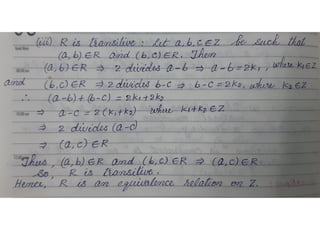 (iii) R is transitive : Let a, b, c ∈ Z be such that
(a, b) ∈ R and (b, c) ∈ R. Then
(a, b) ∈ R ⇒ 2 divides a-b ⇒ a-b = 2k₁ , where k₁ ∈ Z
and (b, c) ∈ R ⇒ 2 divides b-c ⇒ b-c = 2k₂, where k₂ ∈ Z
∴ (a-b) + (b-c) = 2k₁ + 2k₂
⇒ a-c = 2(k₁+k₂) where k₁+k₂ ∈ Z
⇒ 2 divides (a-c)
⇒ (a, c) ∈ R
Thus, (a, b) ∈ R and (b, c) ∈ R ⇒ (a, c) ∈ R
So, R is transitive.
Hence, R is an equivalence relation on Z.